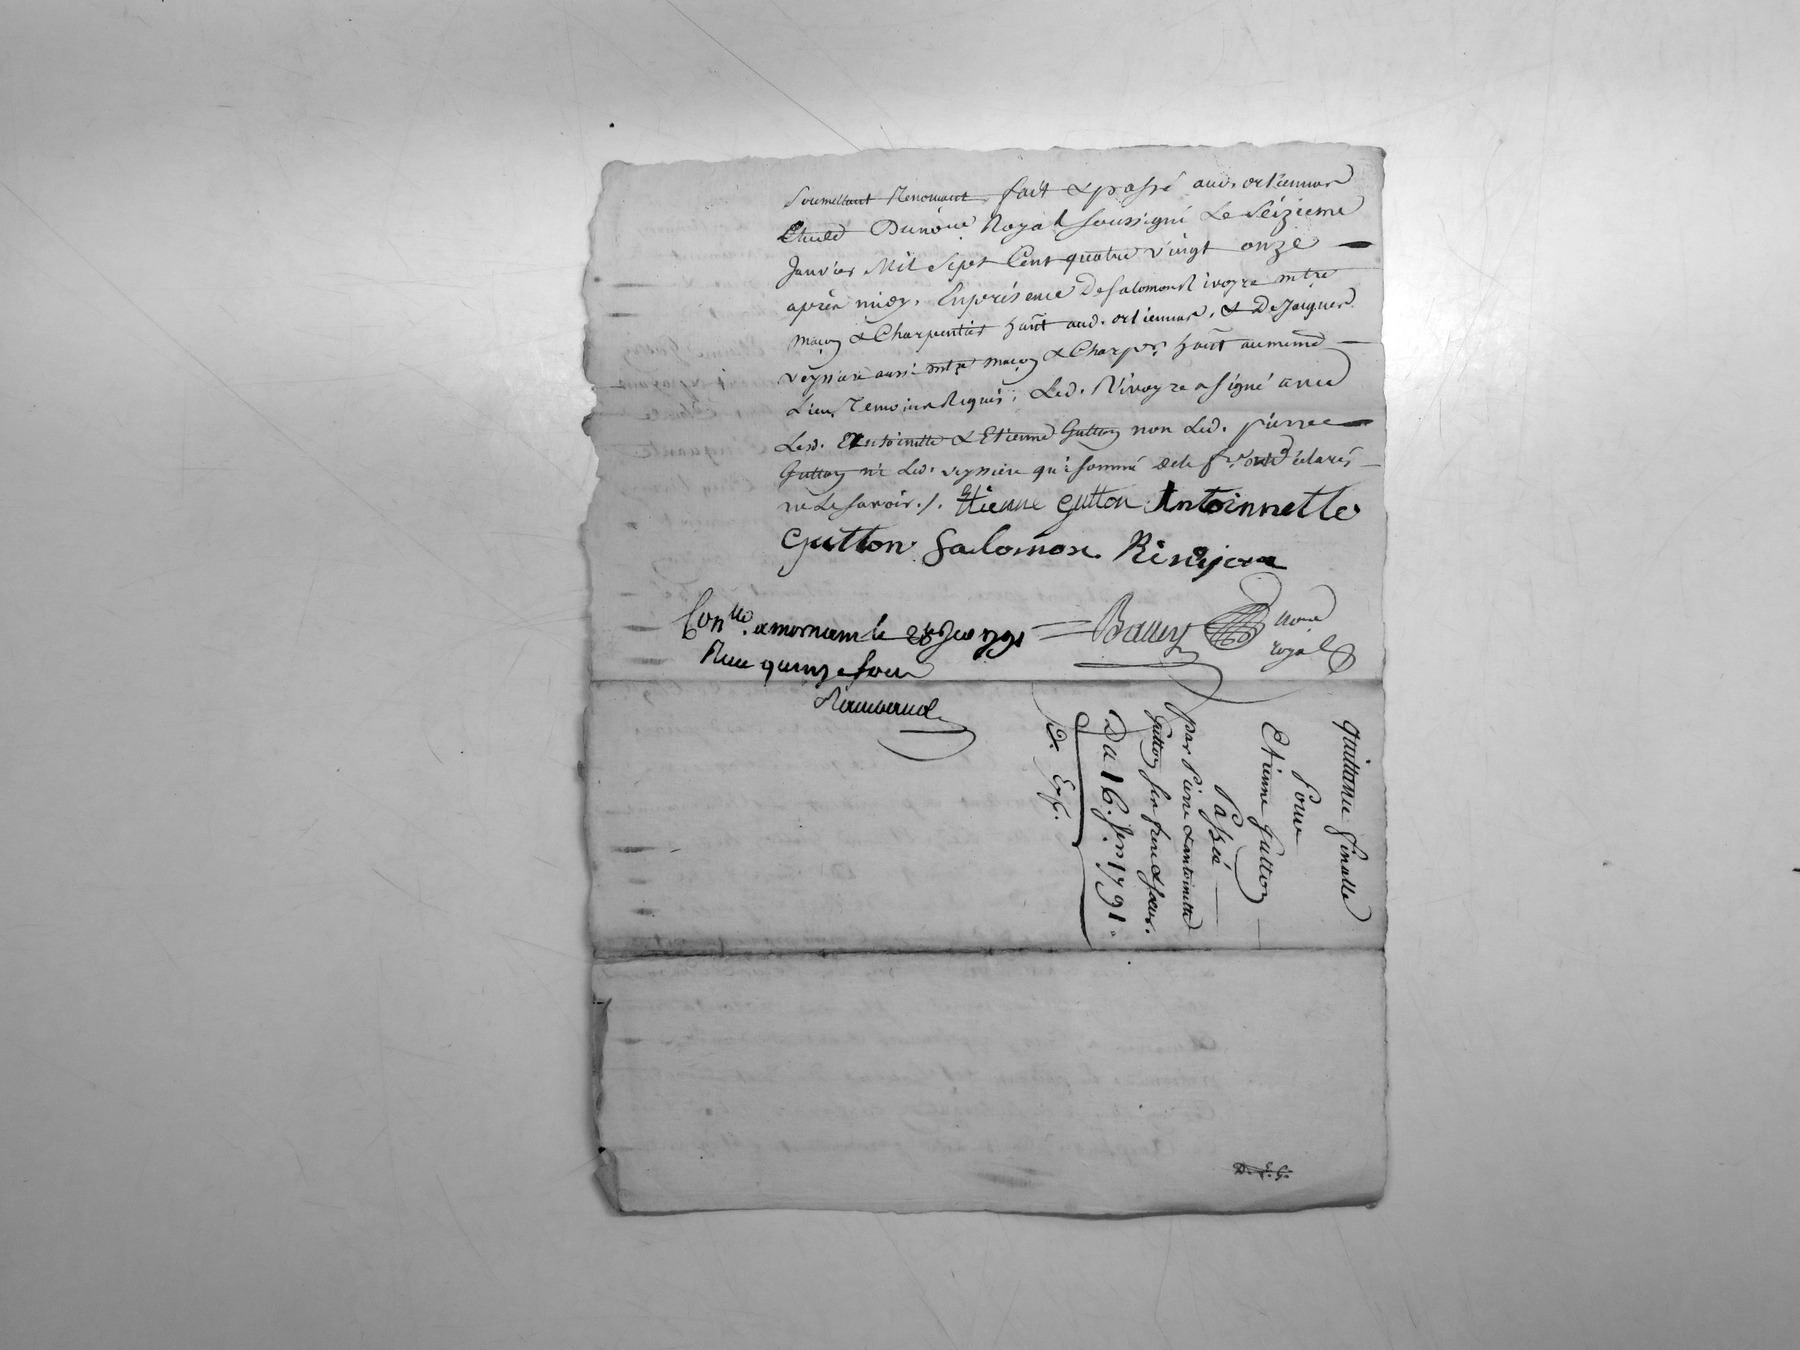 Soumettant Renonceant fait & passé aud. orliennas
Etude Dunore Royal soussigné Le Seizieme
Janvier Mil Sept Cent quatre vingt onze
après midy, En présence De Salomon Rivoyre mtre
maçon & Charpentier habt aud. orliennas, & De Jacques
veyssiere aussi mtre maçon & Charper. habt au meme
Lieu, Temoins Requis, Led. Rivoyre a signé avec
Lesd. Antoinette & Etienne Gutton non Led. pierre
Gutton ni Led. veyssiere qui sommé de le fe. ont déclaré
ne Le savoir./. Etienne Gutton Antoinnette
Gutton Salomon Rivoyre
Conllé. a mornant le Janv 1791 Baley nore
Reçu quinze sous royal
Rambaud
quittance finalle
Pour
Etienne Gutton
Passée
par Pierre & antoinette
Gutton ses frere & sœur.
Du 16. Jer. 1791.
Exp.
D. É. G.